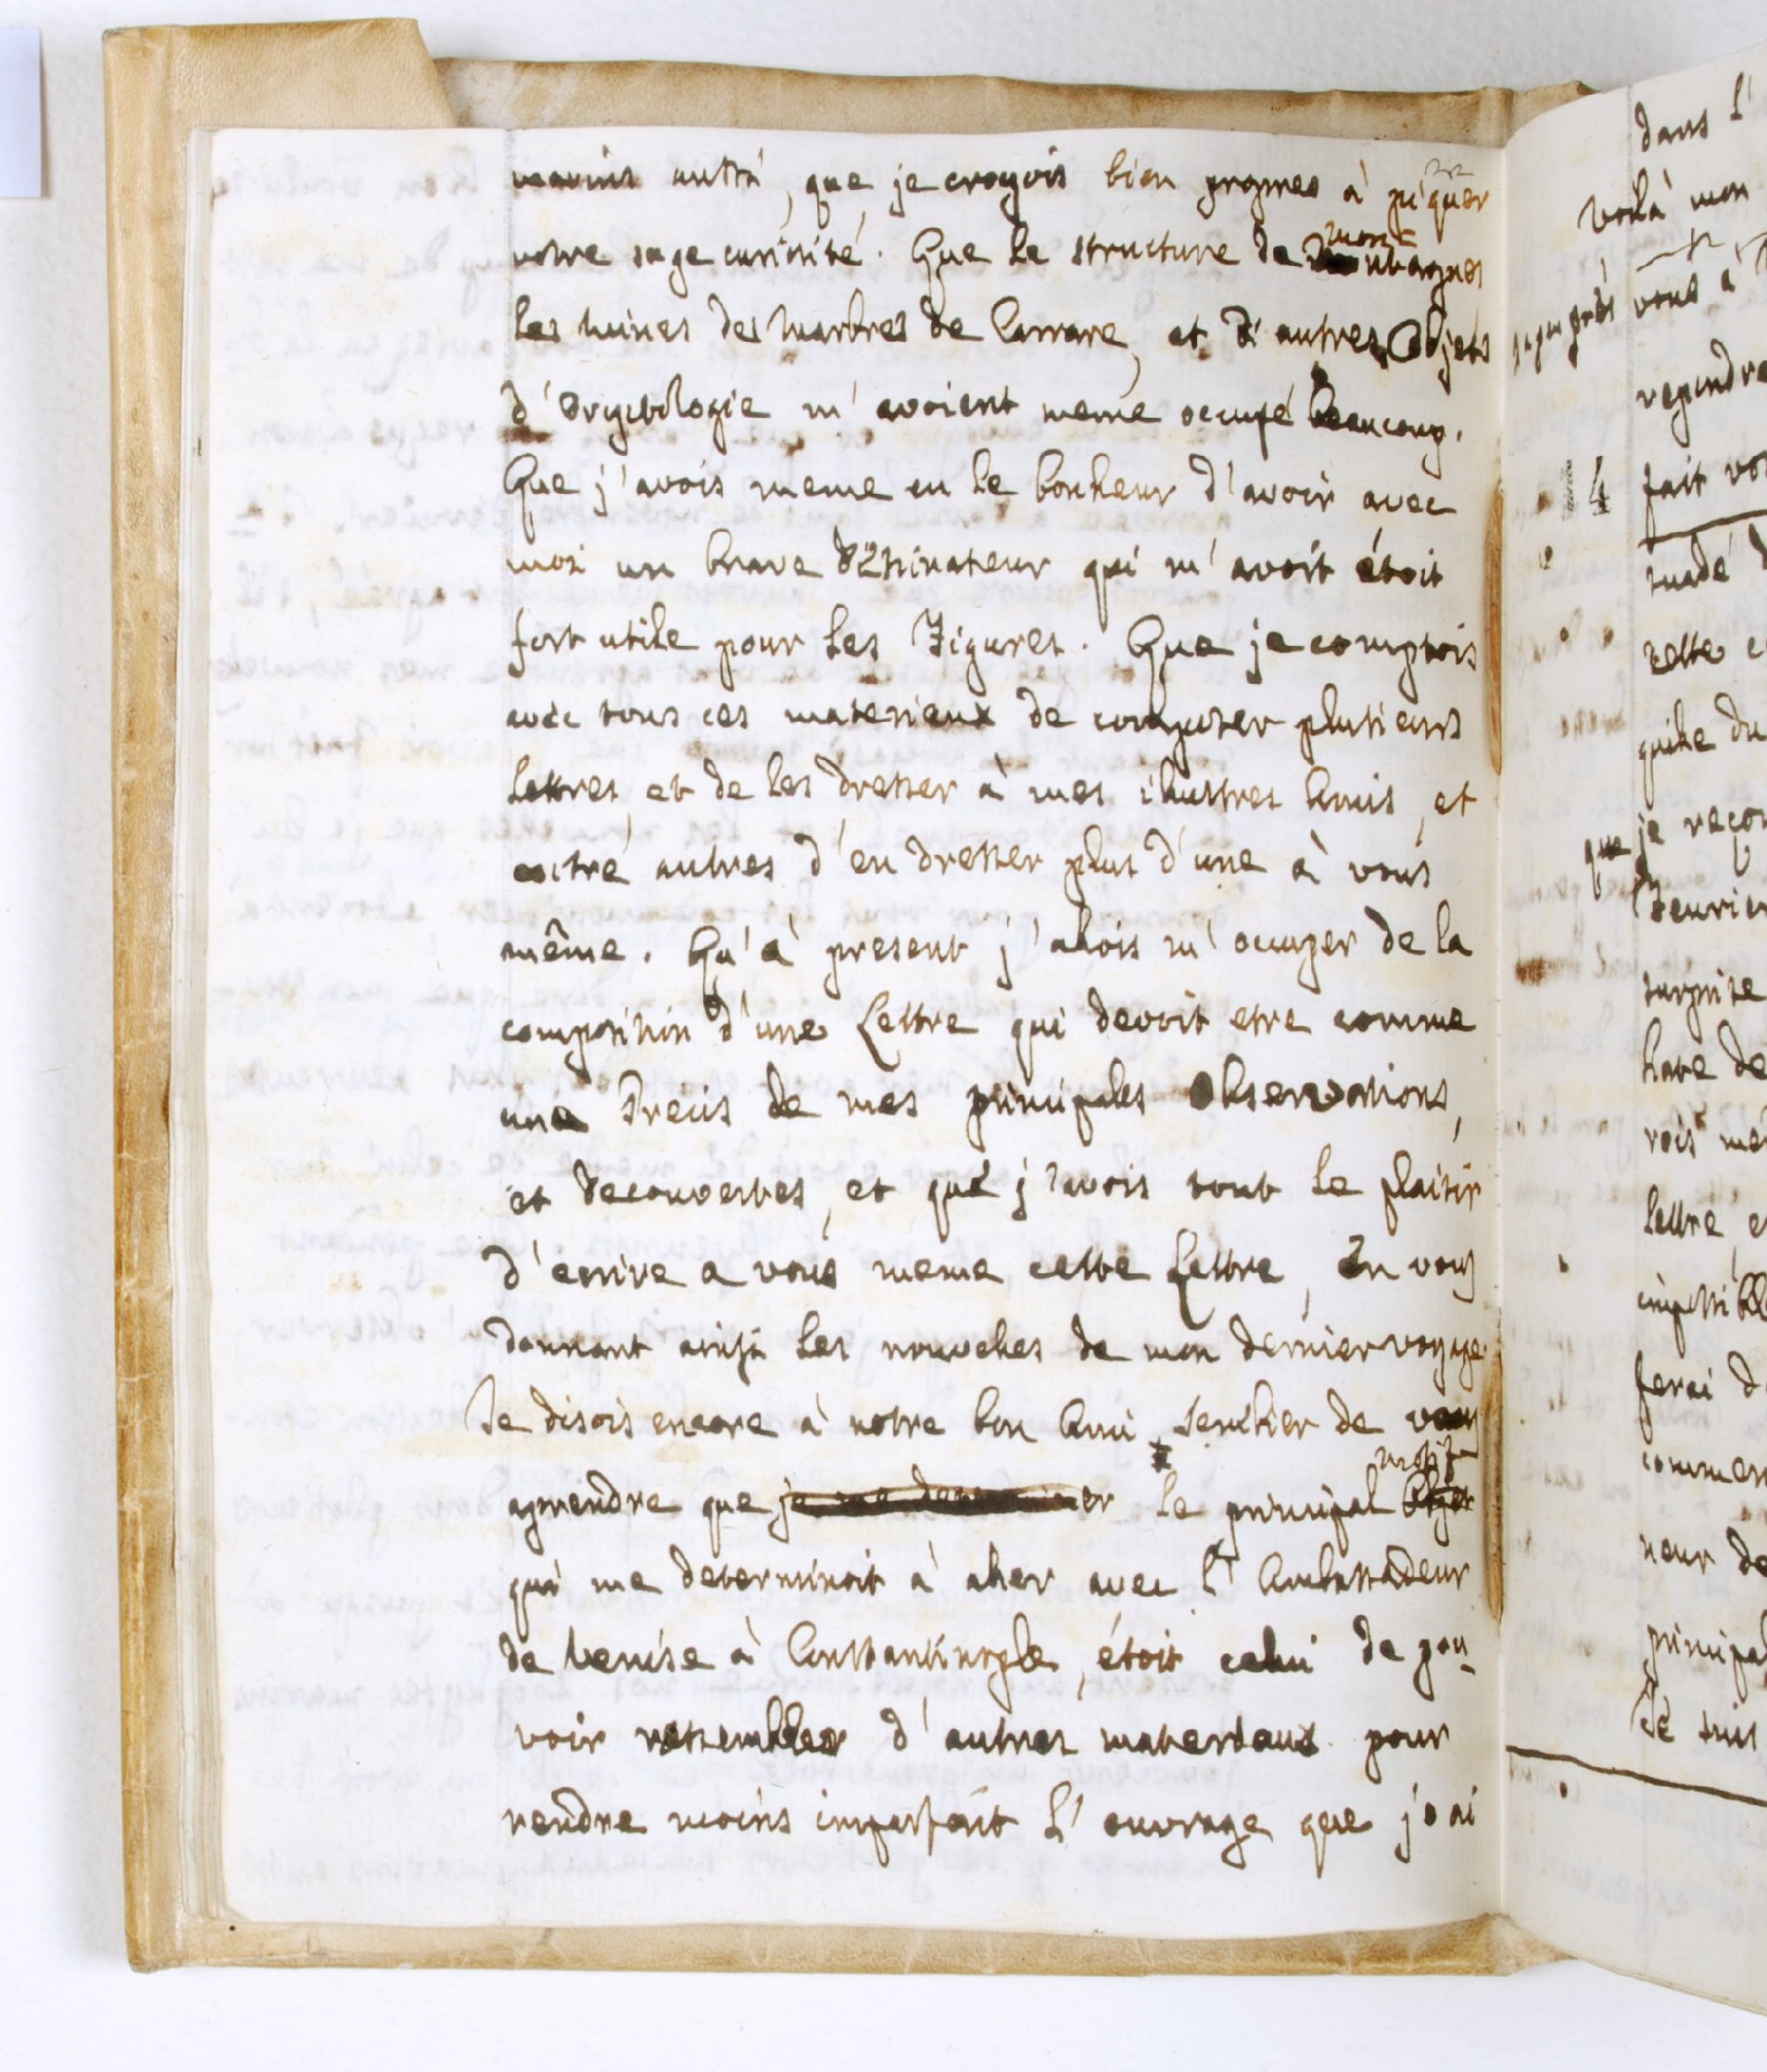 marins aussi, que je croyois bien propres à piquer
votre sage curiosité. Que le structure de montagnes
les mines des Marbres de Carrare, et d'autres Objets
d'Oryctologie m'avoient meme occupé beaucoup.
Que j'avois meme eu le bonheur d'avoir avec
moi un brave déssinateur qui m'avoit étoit
fort utile pour les Figures. Que je comptois
avec tous ces materieux de composer plusieurs
lettres, et de les dresser à mes illustres Amis, et
entre autres d'en dresser plus d'une à vous
même. Qu'à present j'allois m'occuper de la
composition d'une Lettre qui devoit etre comme
une Precis de mes principales Observations,
et decouvertes, et que j'avois tout le plaisir
d'ecrire a vous meme cette Lettre, en vous
donnant ainsi les nouvelles de mon dernier voyage.
Je disois encore à notre bon Ami Senebier de vous
aprendre que je me determiner le principal motif
qui me determinoit à aller avec l'Ambassadeur
de Venise à Constantinople, étoit celui de pou-
voir rassembler d'autres materiaux pour
rendre moins imparfait l'ouvrage que j'ai
dans l'
voilà mon
à peu près vous à
repondre
14 fait vo
suadé
cette
quille du
que je reçou
surprise
have de
rois me
lettre, e
impossible
ferai d
commen
neur de
principal
Je suis